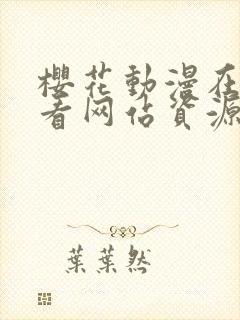 櫻花動漫在
看网佔資源
葉葉然